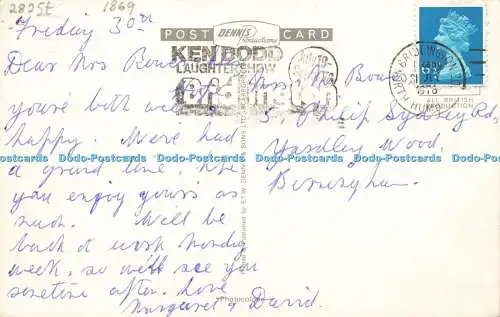 2825t 1869
Friday 30th
POST CARD
DENNIS
Productions
KEN DODD
LAUGHTER SHOW
BRIDLINGTON
1976
ALL BRITISH
PRODUCTION
Dear Mrs
you're both well &
happy. We've had
a grand time, hope
you enjoy yours as
much. We'll be
back at work Monday
week, so we'll see you
sometime after. Love
Margaret & David.
5, Philip Sydney Rd,
Yardley Wood,
Birmingham.
Published by E.T.W. DENNIS & SONS LTD. SCARBOROUGH
Photocolour
Dodo-Postcards Dodo-Postcards Dodo-Postcards Dodo-Postcards Dodo-Postcards